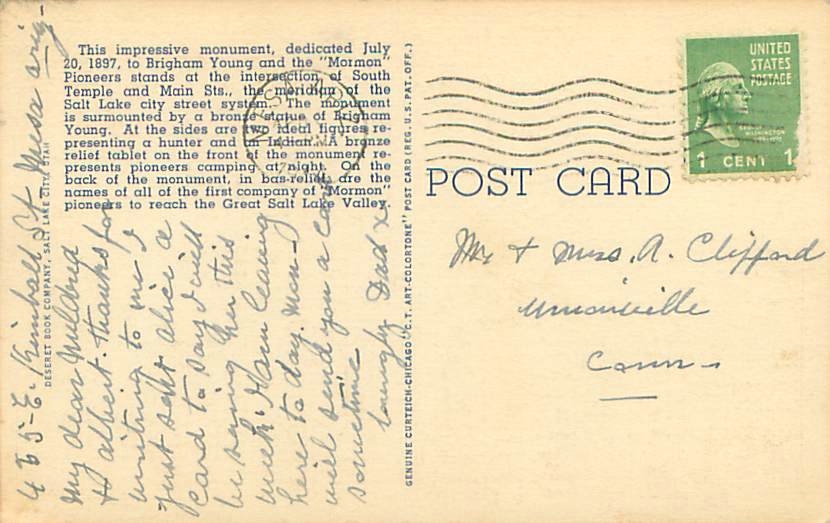 This impressive monument, dedicated July
20, 1897, to Brigham Young and the "Mormon"
Pioneers stands at the intersection of South
Temple and Main Sts., the meridian of the
Salt Lake city street system. The monument
is surmounted by a bronze statue of Brigham
Young. At the sides are two ideal figures re-
presenting a hunter and an Indian. A bronze
relief tablet on the front of the monument re-
presents pioneers camping at night. On the
back of the monument, in bas-relief, are the
names of all of the first company of "Mormon"
pioneers to reach the Great Salt Lake Valley.
DESERET BOOK COMPANY, SALT LAKE CITY, UTAH
GENUINE CURTEICH-CHICAGO "C.T. ART-COLORTONE" POST CARD (REG. U.S. PAT. OFF.)
UNITED
STATES
POSTAGE
GEORGE
WASHINGTON
1 CENT 1
POST CARD
Mr + Mrs. A. Clifford
Unionville
Conn -
E. Kimball St. Mesa ariz-
My dear Mildred
to albert. thanks for
writing to me I
Just sent alice a
Card to say I will
be seeing her this
week. I am leaving
here to day. Mon-
will send you a card
sometime
lovingly Dad x